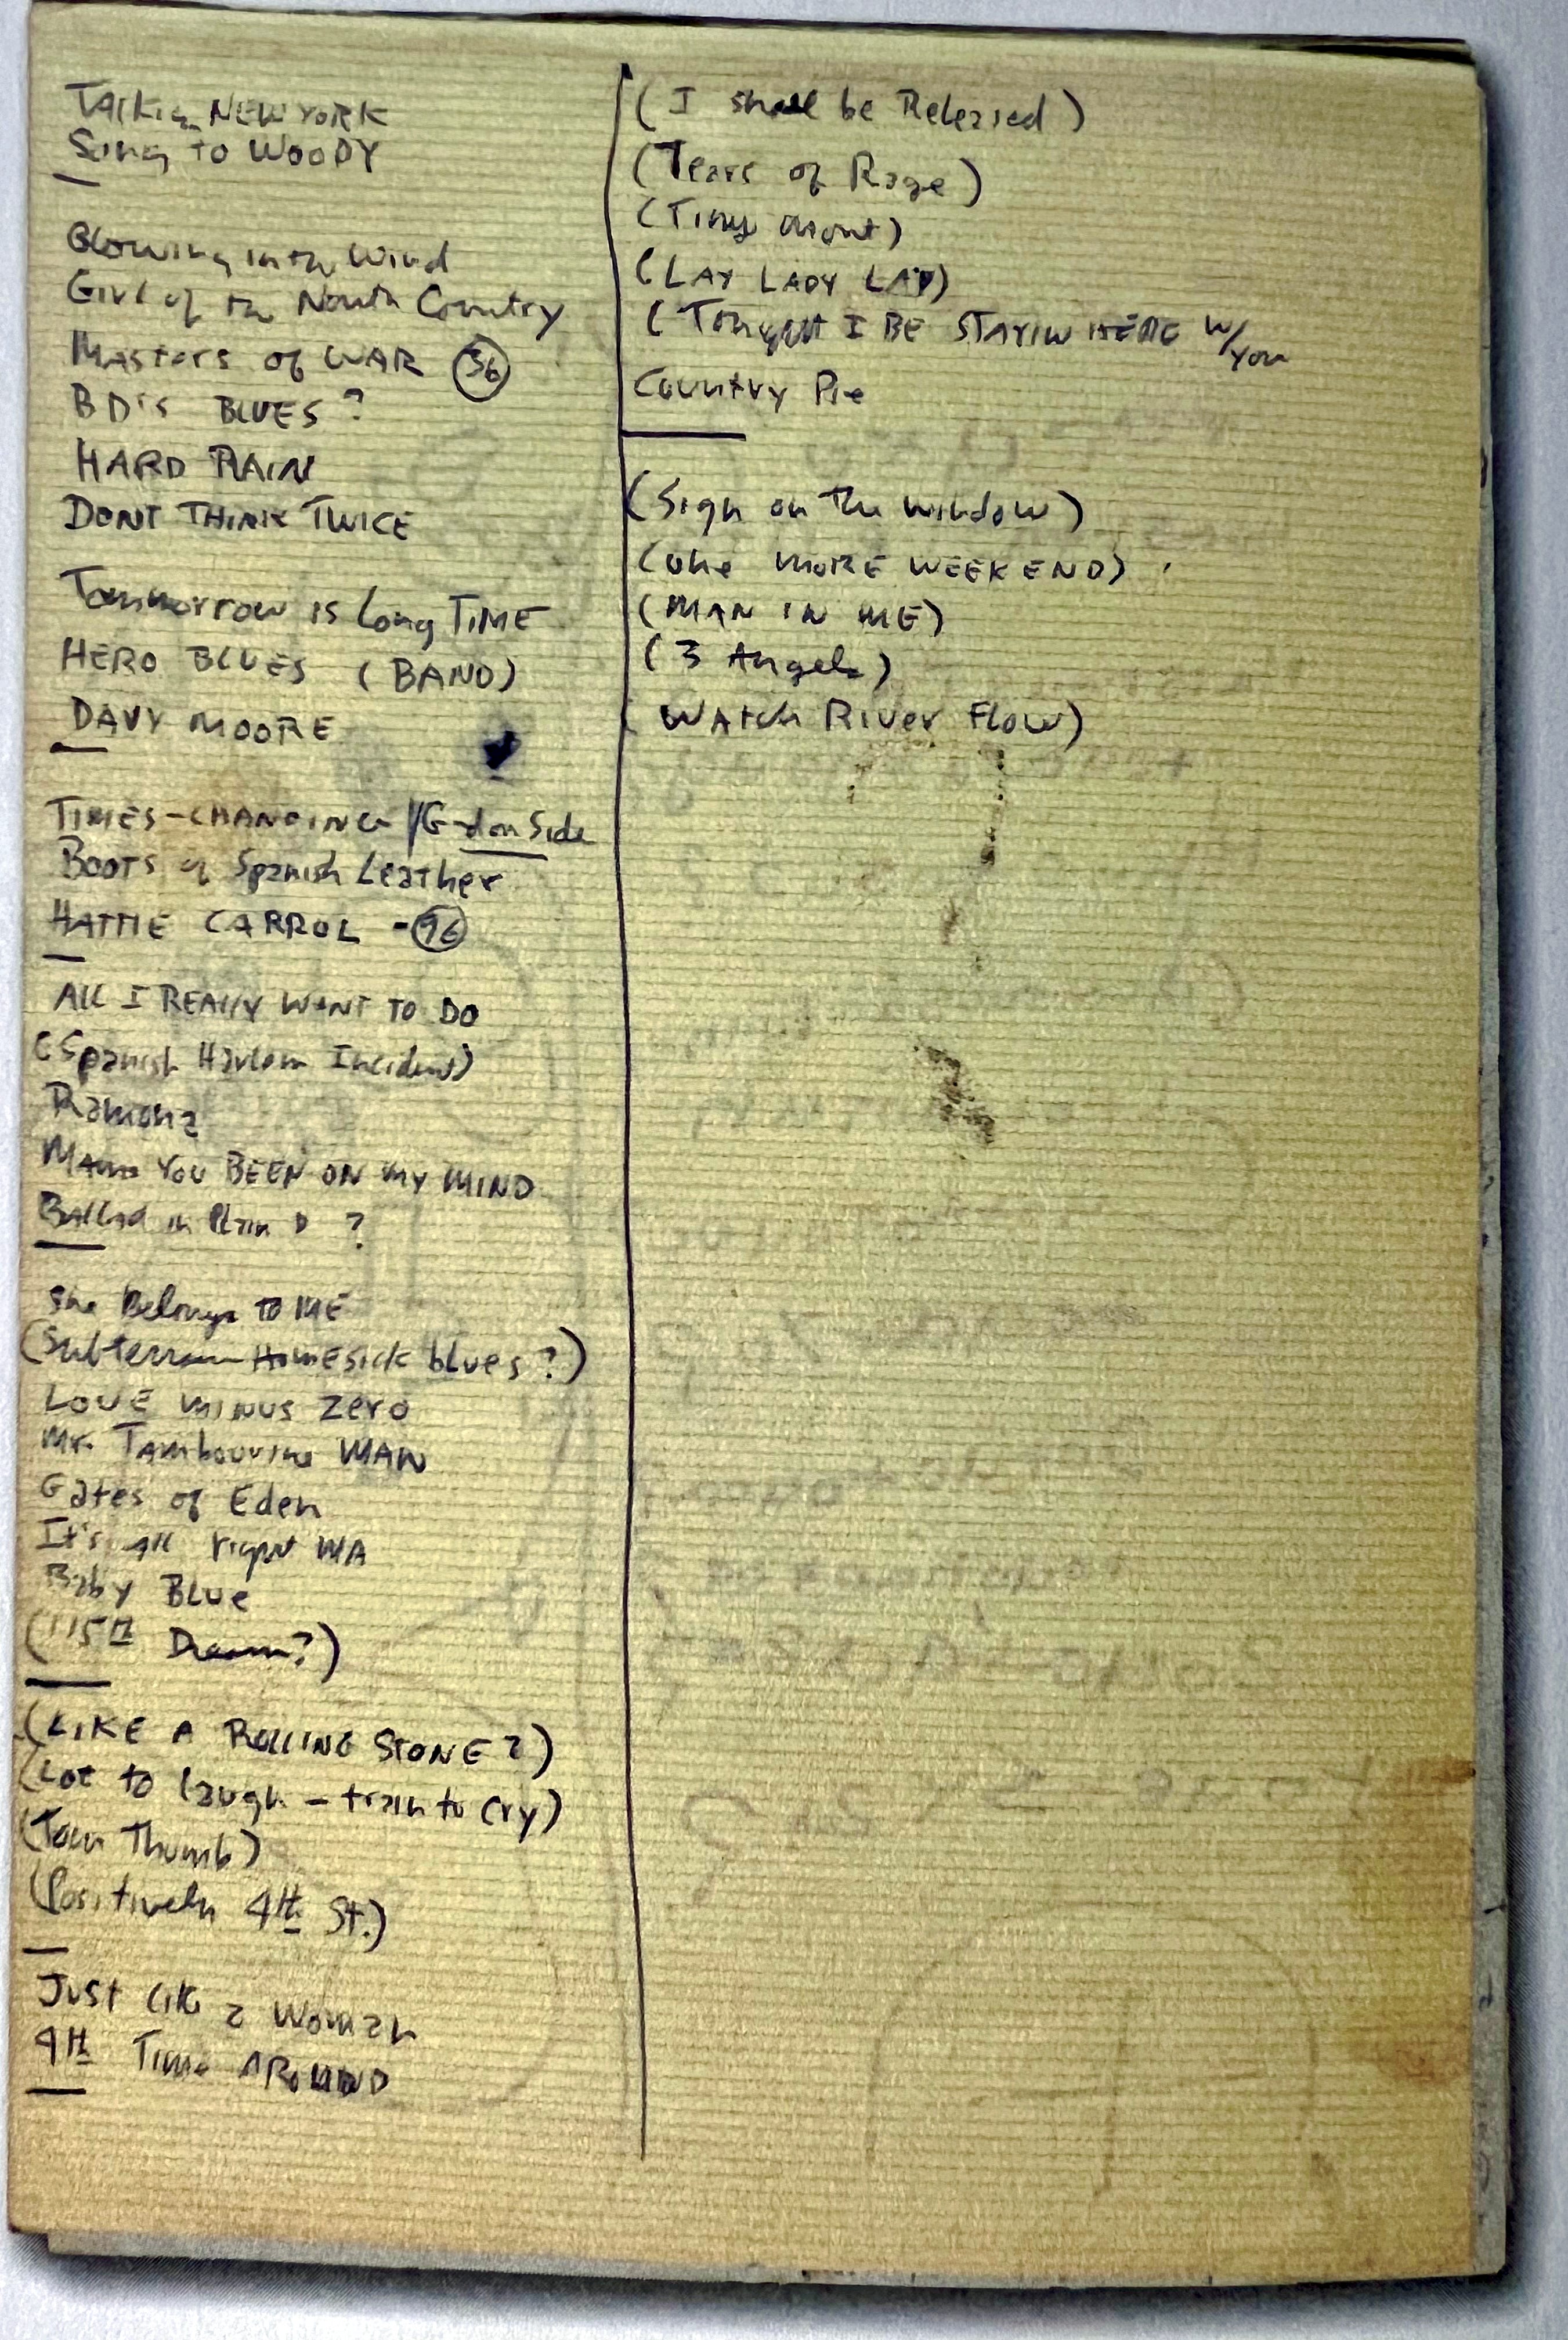 Talkin NEW YORK
Song to WOODY
Blowing in the Wind
Girl of the North Country
Masters of WAR 56
BD'S BLUES?
HARD RAIN
DONT THINK TWICE
Tommorrow is Long TIME
HERO BLUES (BAND)
DAVY MOORE
TIMES-CHANGING /G-d on Side
BOOTS of Spanish Leather
HATTIE CARROL - 96
All I REALLY WANT TO DO
(Spanish Harlem Incident)
Ramona
Mama YOU BEEN ON MY MIND
Ballad in Plain D ?
She Belongs to ME
(Subterranean HomESick blues?)
LOVE MINUS Zero
Mr. Tambourine MAN
Gates of Eden
It's All right MA
Baby BLUE
(115th Dream?)
(LIKE A ROLLING STONE?)
(Lot to laugh - train to Cry)
(Tom Thumb)
(Positively 4th St.)
Just Like a Woman
4th Time AROUND
(I shall be Released)
(Tears of Rage)
(Tiny Mont)
(LAY LADY LAY)
(Tonight I BE STAYIN HERE W/
you
Country Pie
(Sign on the window)
(one MORE WEEKEND)
(MAN IN ME)
(3 Angels)
(WAtch River Flow)